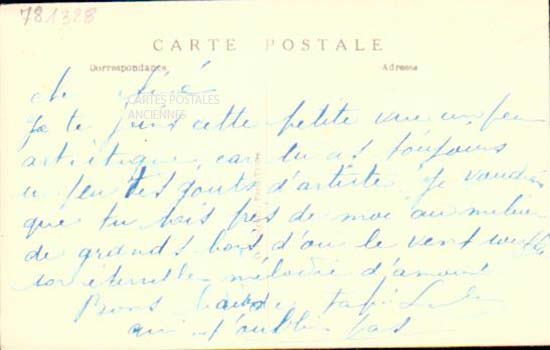 781328
CARTE POSTALE
Correspondance Adresse
CARTES POSTALES
ANCIENNES
Je te joins cette petite vue un peu
artistique, car tu as toujours
un peu tes gouts d'artiste. Je voudrais
que tu sois près de moi au milieu
de grands bois d'ou le vent souffle
son éternelle mélodie d'amour
Bons baisers de ta
qui t'oublie pas